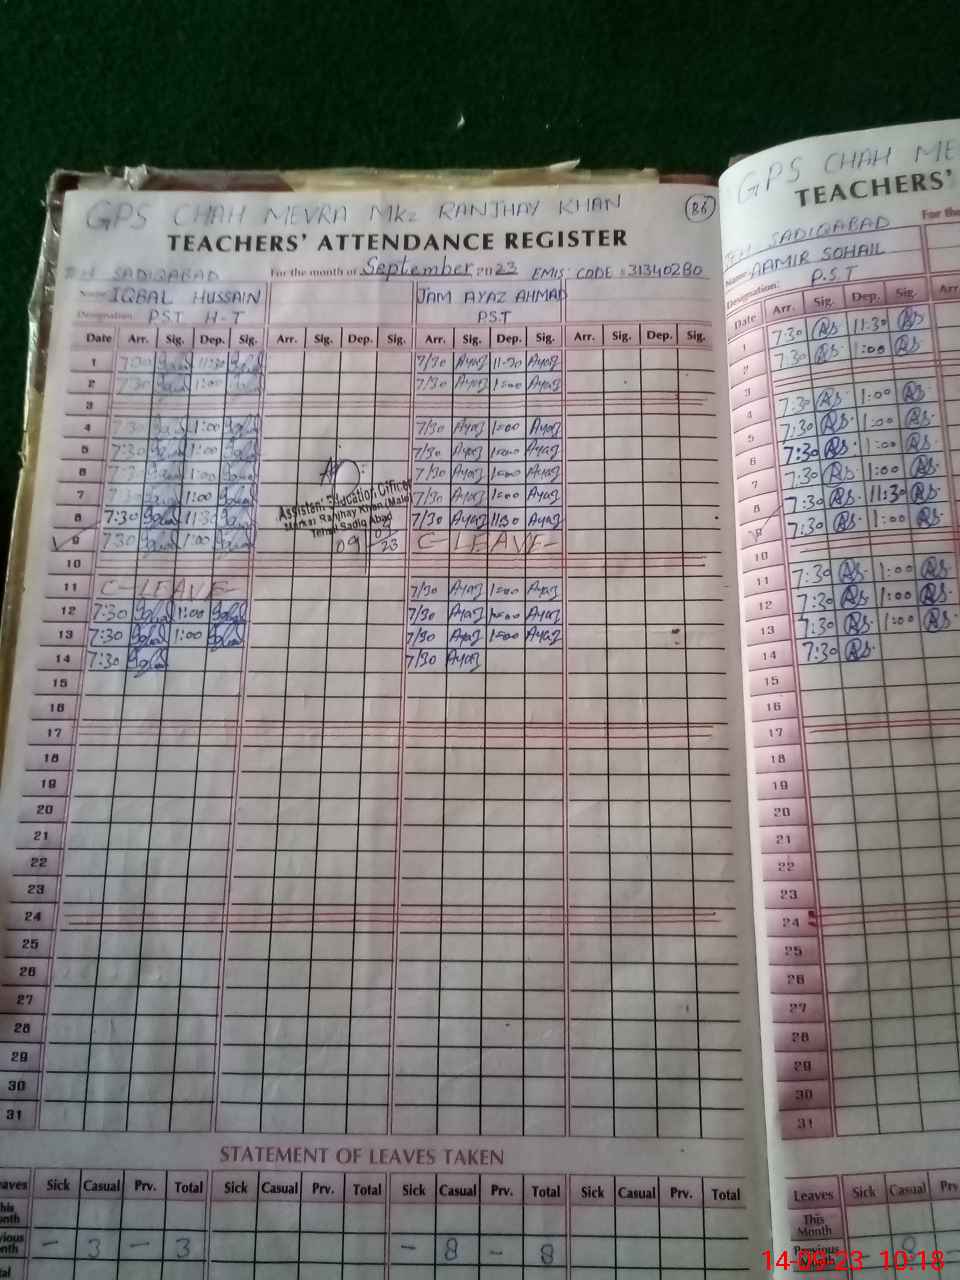 GPS CHAH MEVRA MKZ RANJHAY KHAN
86
TEACHERS' ATTENDANCE REGISTER
TEH SADIQABAD For the month of September 2023 EMIS CODE 31340280
Name: IQBAL HUSSAIN JAM AYAZ AHMAD
Designation: P.S.T H-T P.S.T
Date Arr. Sig. Dep. Sig. Arr. Sig. Dep. Sig. Arr. Sig. Dep. Sig. Arr. Sig. Dep. Sig.
1 7:30 11:30 7/30 Ayaz 11:30 Ayaz
2 7:30 1:00 7/30 Ayaz 1:00 Ayaz
3
4 7:30 1:00 7/30 Ayaz 1:00 Ayaz
5 7:30 1:00 7/30 Ayaz 1:00 Ayaz
6 7:30 1:00 7/30 Ayaz 1:00 Ayaz
7 7:30 1:00 7/30 Ayaz 1:00 Ayaz
8 7:30 11:30 7/30 Ayaz 11:30 Ayaz
9 7:30 1:00 C-LEAVE-
Assistant Education Officer
Markaz Ranjhay Khan (Male)
Tehsil Sadiq Abad
09 09 23
10
11 C-LEAVE- 7/30 Ayaz 1:00 Ayaz
12 7:30 1:00 7/30 Ayaz 1:00 Ayaz
13 7:30 1:00 7/30 Ayaz 1:00 Ayaz
14 7:30 7/30 Ayaz
15
16
17
18
19
20
21
22
23
24
25
26
27
28
29
30
31
STATEMENT OF LEAVES TAKEN
Sick Casual Prv. Total Sick Casual Prv. Total Sick Casual Prv. Total Sick Casual Prv. Total
- 3 - 3 - 8 - 8
GPS CHAH ME
TEACHERS'
TEH SADIQABAD For the
Name: AAMIR SOHAIL
Designation: P.S.T
Date Arr. Sig. Dep. Sig. Arr
1 7:30 11:30
2 7:30 1:00
3
4 7:30 1:00
5 7:30 1:00
6 7:30 1:00
7 7:30 1:00
8 7:30 11:30
9 7:30 1:00
10
11 7:30 1:00
12 7:30 1:00
13 7:30 1:00
14 7:30
15
16
17
18
19
20
21
22
23
24
25
26
27
28
29
30
31
Leaves Sick Casual Prv
This Month
Previous Month
14-09-23 10:18